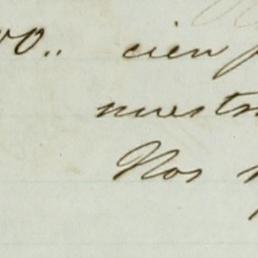 00.. cien
nuestr
Nos